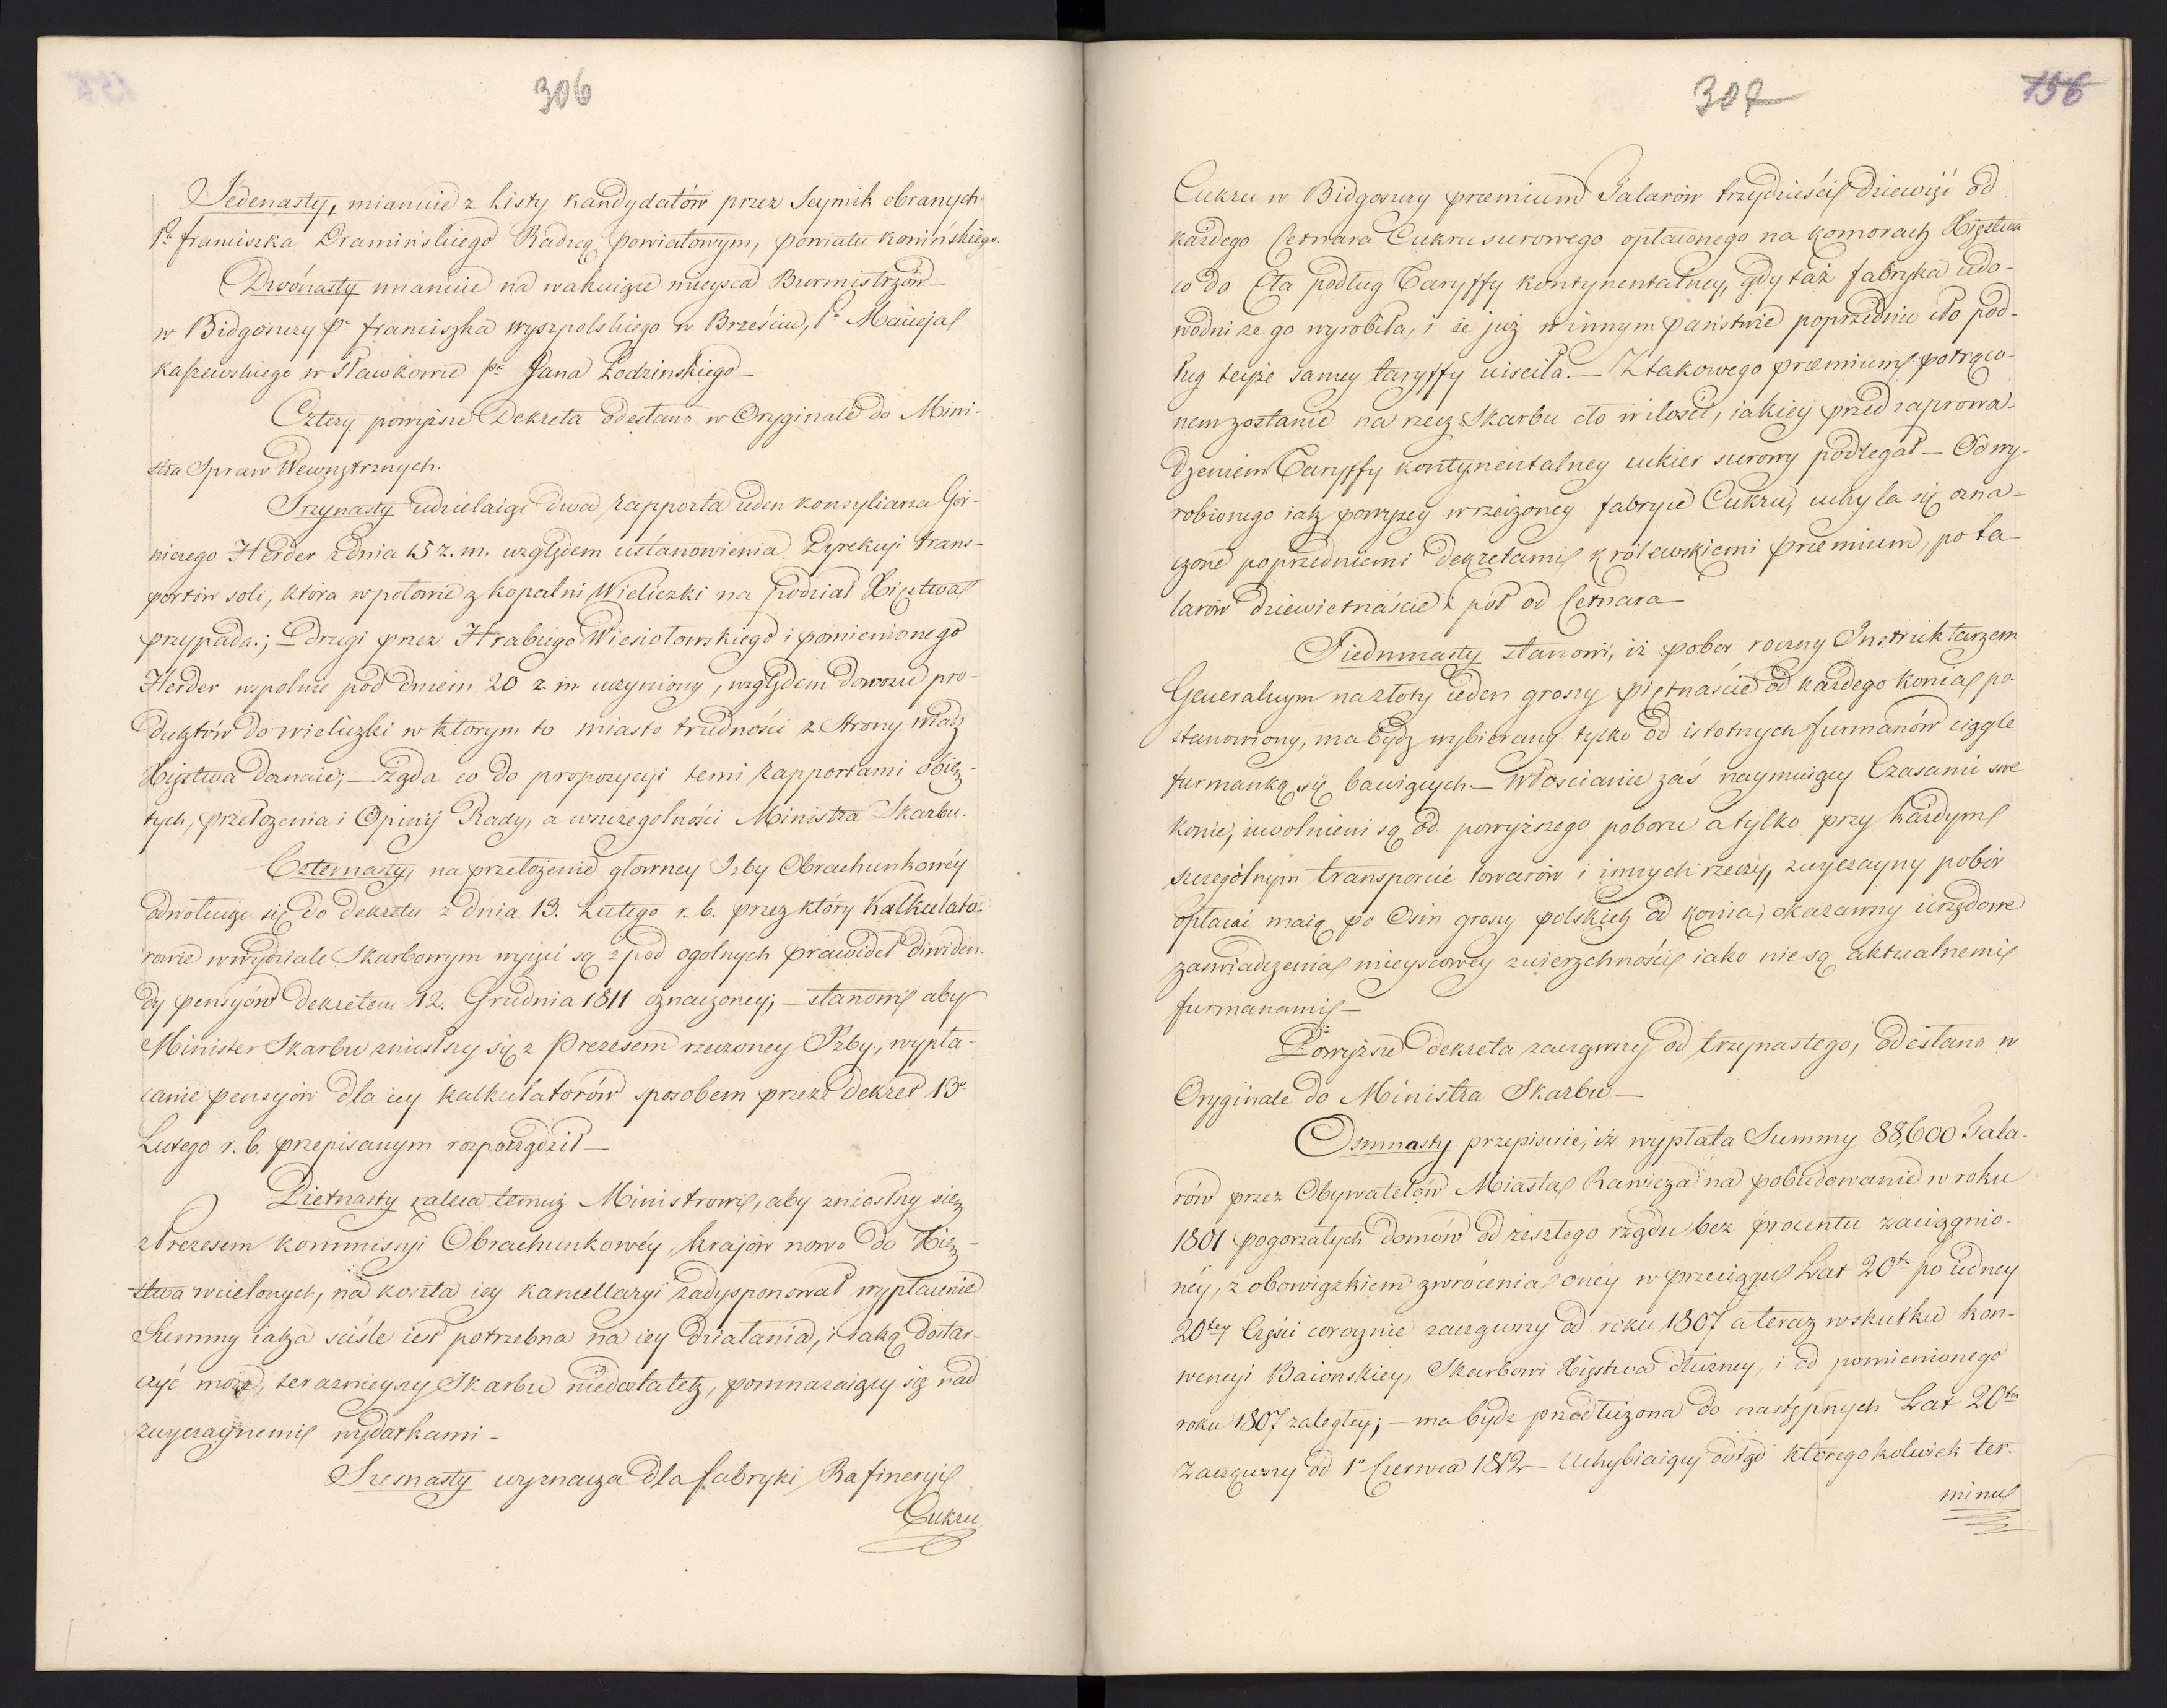 306
Jedenasty, mianuie z Listy kandydatów przez Seymik obranych
Pa franciszka Dramińskiego Radzcą powiatowym, powiatu konińskiego
Dwónasty mianuie na wakuiące mieysca Burmistrzów
w Bidgoszczy Pa franciszka wyszpolskiego w Brześciu, Pa Macieja
kaszewskiego w Sławkowie pa Jana Łodzinskiego —
Cztery powyższe Dekreta odesłano w Oryginale do Mini-
stra Spraw Wewnętrznych.
Trzynasty udzielaiąc dwa rapporta ieden konsyliarza Gór-
niczego Herder z dnia 15 z. m. względem ustanowienia Dyrekcyi trans-
portów soli, która w połowie z kopalni Wieliczki na podział Xięstwa
przypada; — drugi przez Hrabiego Wiesiołowskiego i pomienionego
Herder wspolnie pod dniem 20 z. m. uczyniony, względem dowozu pro-
duktów do wieliczki w ktorym to miasto trudności z Strony władz
Xięstwa doznaie; — żąda co do propozycyi temi rapportami obię-
tych, przełożenia i Opinij Rady, a wszczegolności Ministra Skarbu.
Czternasty, na przełożenie głowney Izby Obrachunkowéy
odwołuiąc się do dekretu z dnia 13. Lutego r. b. przez który Kalkulato-
rowie w wydziale Skarbowym wyięci są z pod ogolnych prawideł dividen-
dy pensyów Dekretem 12. Grudnia 1811 oznaczoney; — stanowi aby
Minister Skarbu zniosłszy się z Prezesem rzeczoney Izby, wypła-
canie pensyów dla iey kalkulatorów sposobem przez dekret 13o
Lutego r. b. przepisanym rozporządził —
Piętnasty zaleca temuż Ministrowi, aby zniosłszy się
z Prezesem kommissyi Obrachunkowéy, krajów nowo do Xię-
stwa wcielonych, na koszta iey kancellaryi zadysponował wypłacenie
Summy iaka ściśle iest potrzebna na iey działania, i iaką dostar-
czyć może, teraznieyszy Skarbu niedostatek, pomnażaiący się nad
zwyczaynemi wydatkami —
Szesnasty wyznacza dla fabryki Rafineryi
Cukru
307
156
Cukru w Bidgoszczy præmium Talarów trzydzieści dziewięć od
każdego Cetnara Cukru surowego opłaconego na komorach Xięstwa
co do Cła podług Taryffy kontynentalney, gdy taż fabryka udo-
wodni że go wyrobiła, i że już w innym państwie poprzednio cło pod-
ług teyże samey taryffy uiściła. — Z takowego præmium potrąco-
nem zostanie na rzecz Skarbu cło w ilości, iakiey przed zaprowa-
dzeniem Taryffy kontynentalney cukier surowy podlegał — Od wy-
robionego iak powyżey w rzeczoney fabryce Cukru, uchyla się ozna-
czone poprzedniemi dekretami królewskiemi præmium, po ta-
larów dziewietnaście i pół od Cetnara —
Siedmnasty stanowi, iż pobor roczny Instruktarzem
Generalnym na złoty ieden groszy piętnaście od każdego konia po-
stanowiony, ma bydź wybierany tylko od istotnych furmanów ciągle
furmanką się bawiących — Włościanie zaś naymuiący Czasami swe
konie, uwolnieni są od powyższego poboru a tylko przy każdym
szczególnym transporcie towarów i innych rzeczy, zwyczayny pobór
opłacać maią po Ośm groszy polskich od konia, okazawszy urzędowe
zaświadczenia mieyscowey zwierzchności iako nie są aktualnemi
furmanami —
Powyższe dekreta zacząwszy od trzynastego, odesłano w
Oryginale do Ministra Skarbu —
Osmnasty przepisuie, iż wypłata Summy 88,600 Tala-
rów przez Obywatelów Miasta Rawicza na pobudowanie w roku
1801 pogorzałych domów od zeszłego rządu bez procentu zaciągnio-
néy, z obowiązkiem zwrócenia onéy w przeciągu Lat 20tu po iedney
20tey Części corocznie zacząwszy od roku 1807 a teraz wskutku kon-
wencyi Baionskiey, Skarbowi Xięstwa dłużney, i od pomienionego
roku 1807 zaległey; — ma bydz przedłużona do następnych Lat 20tu
zacząwszy od 1o Czerwca 1812 — Uchybiaiący odtąd któregokolwiek ter-
minu